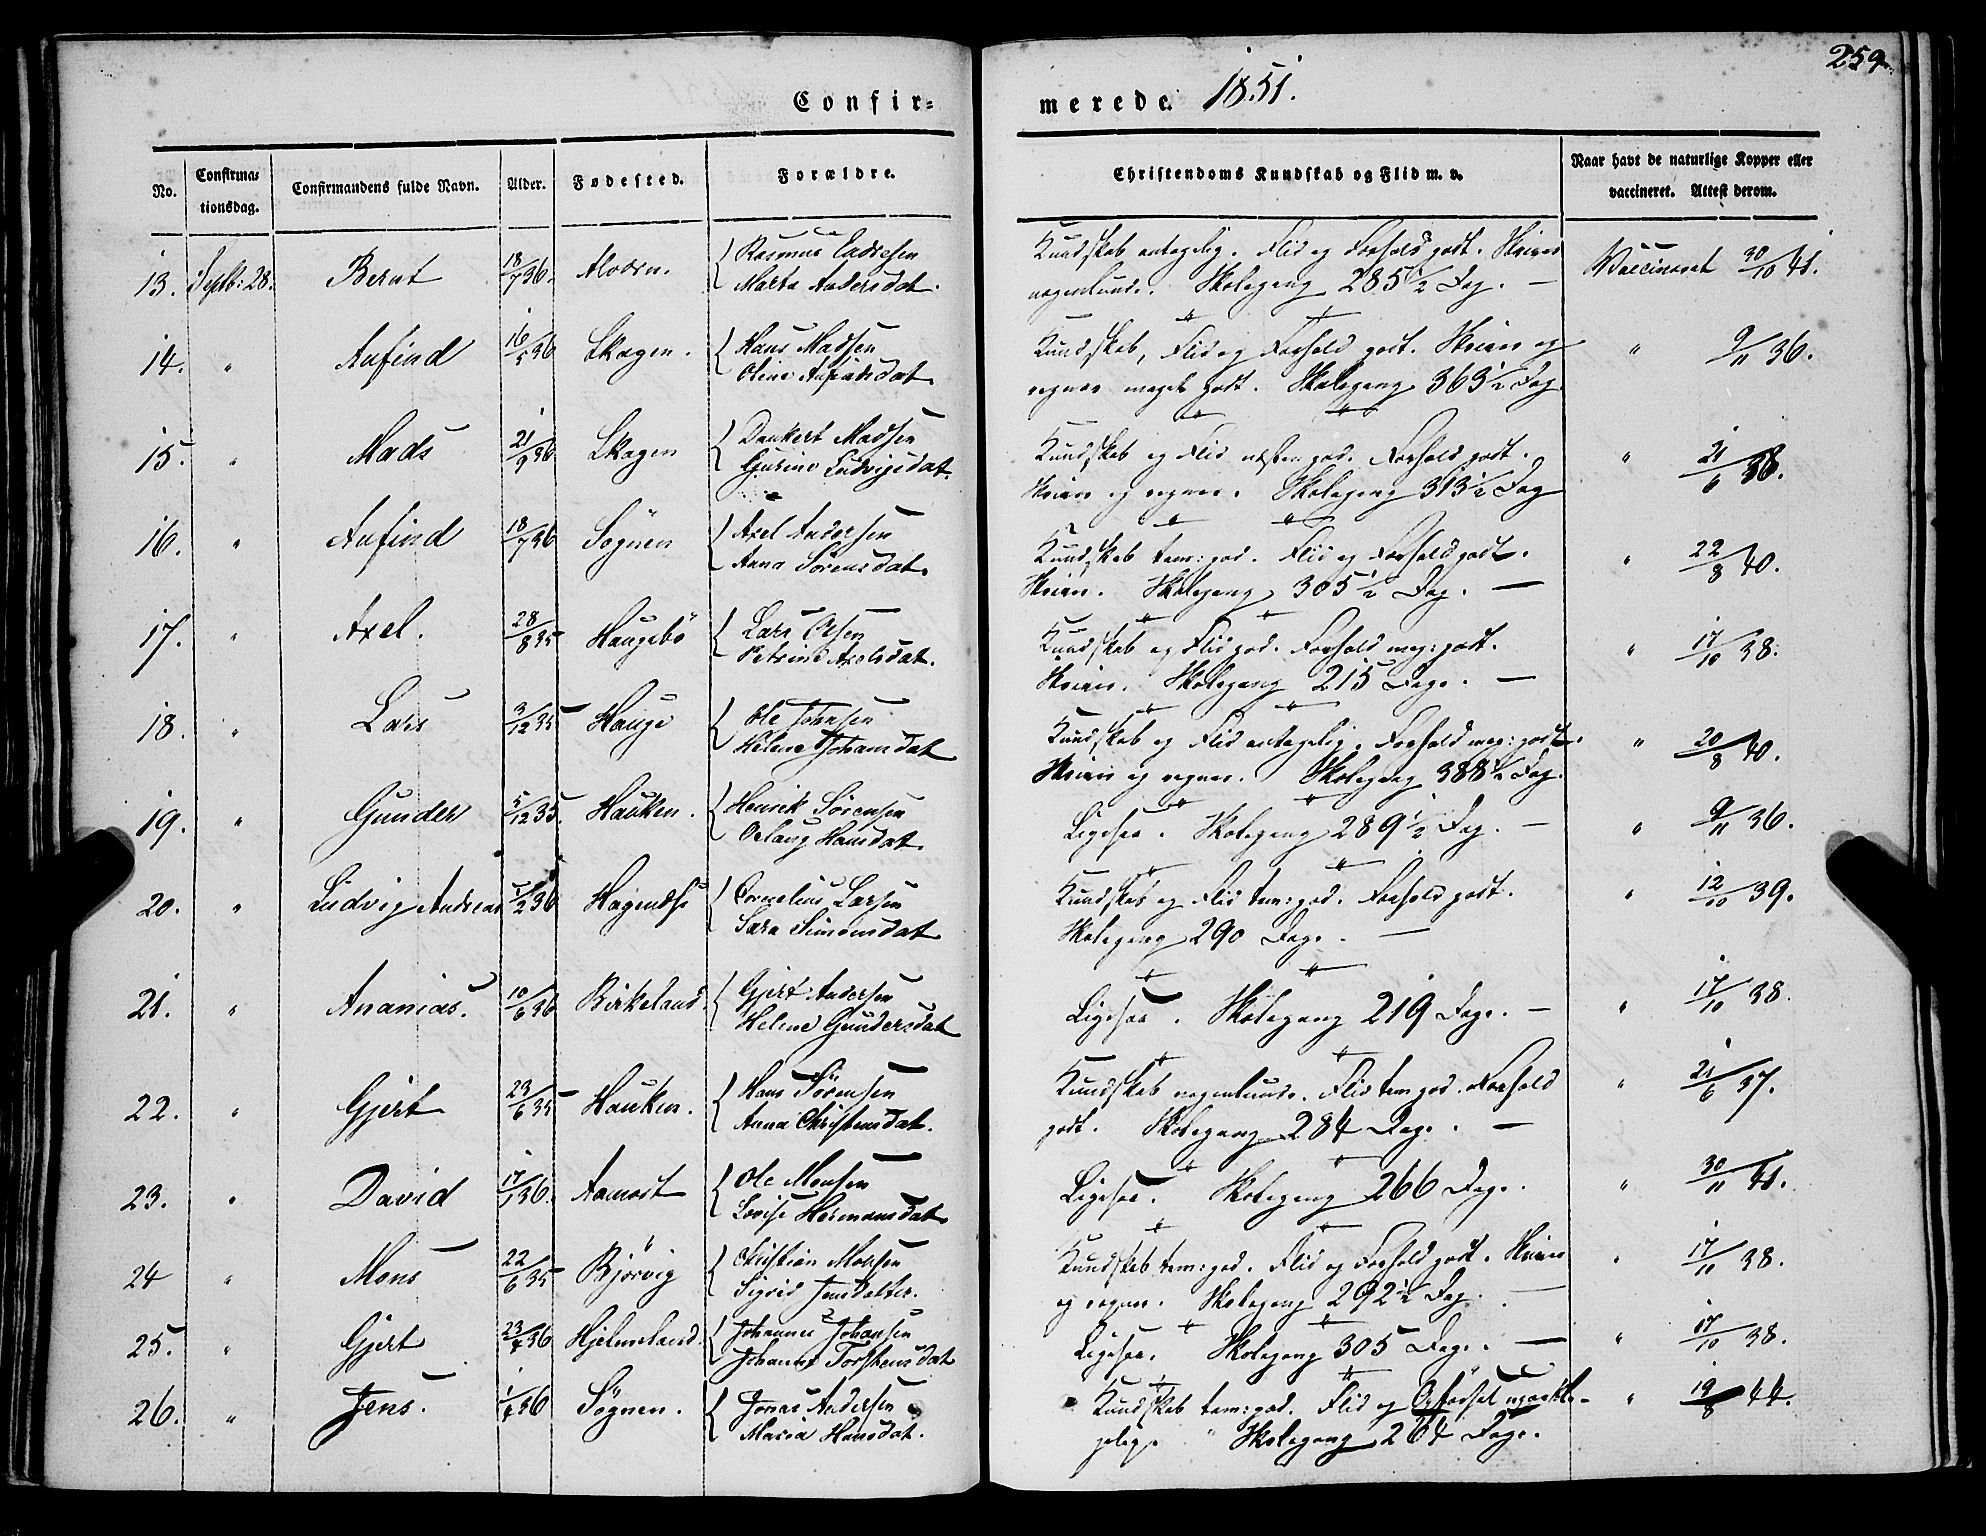 259
Confir=
merede. 1851.
No.
Confirma=
tionsdag.
Confirmandens fulde Navn.
Alder.
Fødested.
Forældre.
Christendoms Kundskab og Flid m. v.
Naar havt de naturlige Kopper eller
vaccineret. Attest derom.
13. Septb: 28. Bernt 18/7 36. Rasmus
Marta Andersdat.
Kundskab antagelig. Flid og Forhold godt. Skriver
nogenlunde. Skolegang 285 1/2 Dag. — Vaccineret 30/10 41.
14. " Anfind 16/5 36 Skagen. Hans Madsen
Oline Anfindsdat.
Kundskab, Flid og Forhold godt. Skriver og
regner meget godt. Skolegang 363 1/2 Dag " 9/11 36.
15. " Mads 21/9 36 Skagen Dankert Madsen
Gjurine Ludvigsdat.
Kundskab og Flid næsten god. Forhold godt.
Skriver og regner. Skolegang 313 1/2 Dag " 21/6
16. " Anfind 18/7 36 Sögnen Axel Andersen
Anna Sörensdat.
Kundskab tem: god. Flid og Forhold godt.
Skriver. Skolegang 305 1/2 Dag. — " 22/8 40.
17. " Axel. 28/8 35 Haugebö Lars Olsen
Petrine Axelsdat.
Kundskab og Flid god. Forhold meg: godt.
Skriver. Skolegang 215 Dage. — " 17/10 38.
18. " Lars 3/12 35 Hauge Ole Johnsen
Helene Johansdat
Kundskab og Flid antagelig. Forhold meg: godt.
Skriver og regner. Skolegang 388 1/2 Dag. " 20/8 40.
19. " Gunder 5/12 35. Hauken. Henrik Sörensen
Hansdat.
Ligesaa. Skolegang 289 1/2 Dag. — " 9/11 36.
20. " Ludvig Andreas Cornelius Larsen
Sara Simonsdat
Kundskab og Flid tem: god. Forhold godt.
Skolegang 290 Dage. — " 12/10 39.
21. " Ananias. 10/6 36 Birkeland. Gjert Andersen
Helene Gundersdat
Ligesaa. Skolegang 219 Dage. — " 17/10 38.
22. " Gjert 23/6 35 Hauken. Hans Sörensen
Anna Christensdat.
Kundskab nogenlunde. Flid tem god. Forhold
godt. Skolegang 284 Dage. — " 21/6 37.
23. " David 17/1 36. Aamodt Ole Monsen
Lovise Hermansdat
Ligesaa. Skolegang 266 Dage. " 30/11 41.
24 " Mons 22/6 35 Björvig Christian Monsen
Sigrid Jensdatter.
Kundskab tem: god. Flid og Forhold godt. Skriver
og regner. Skolegang 292 1/2 Dag. — " 17/10 38.
25. " Gjert 23/4 36 Hjelmeland. Johannes Johansen
Johanne Torstensdat
Ligesaa. Skolegang 305 Dage. — " 17/10 38.
26. " Jens. 1/4 36 Sögnen. Jonas Andersen
Maria Hansdat.
Kundskab tem: god. Flid og Opførsel upaakla-
gelige " Skolegang 264 Dage. " 19/8 44.